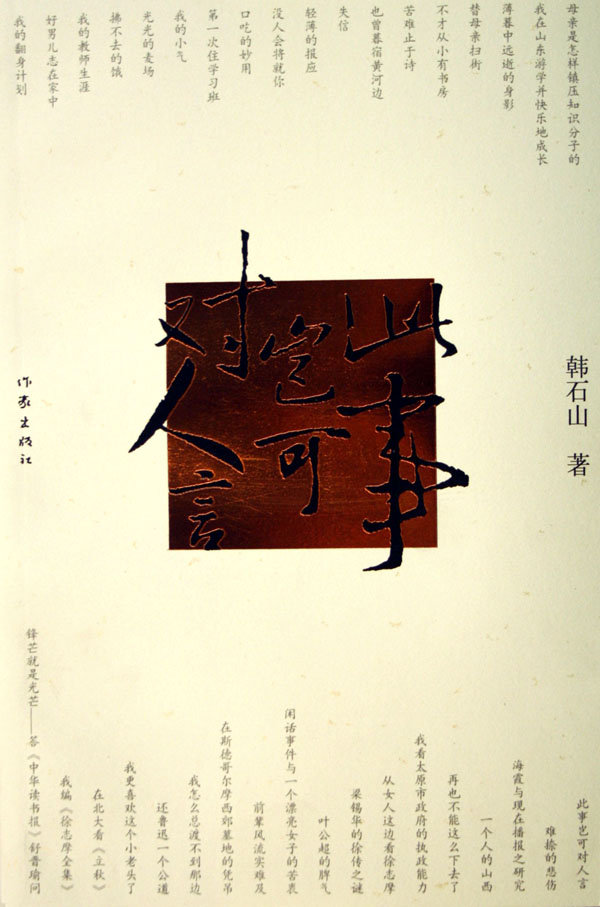 母亲是怎样镇压知识分子的
我在山东游学并快乐地成长
薄暮中远逝的身影
替母亲扫街
不才从小有书房
苦难止于诗
也曾暮宿黄河边
失信
轻薄的报应
没人会将就你
口吃的妙用
第一次住学习班
我的小气
光光的麦场
拂不去的饿
我的教师生涯
好男儿志在家中
我的翻身计划
此事
岂可
对人言
韩石山 著
作家出版社
此事岂可对人言
难捺的悲伤
海霞与现在播报之研究
一个人的山西
再也不能这么下去了
我看太原市政府的执政能力
从女人这边看徐志摩
梁锡华的徐传之谜
叶公超的脾气
闲话事件与一个漂亮女子的苦衷
前辈风流实难及
在斯德哥尔摩西郊墓地的凭吊
我怎么总渡不到那边
还鲁迅一个公道
我更喜欢这个小老头了
在北大看《立秋》
我编《徐志摩全集》
锋芒就是光芒——答《中华读书报》舒晋瑜问